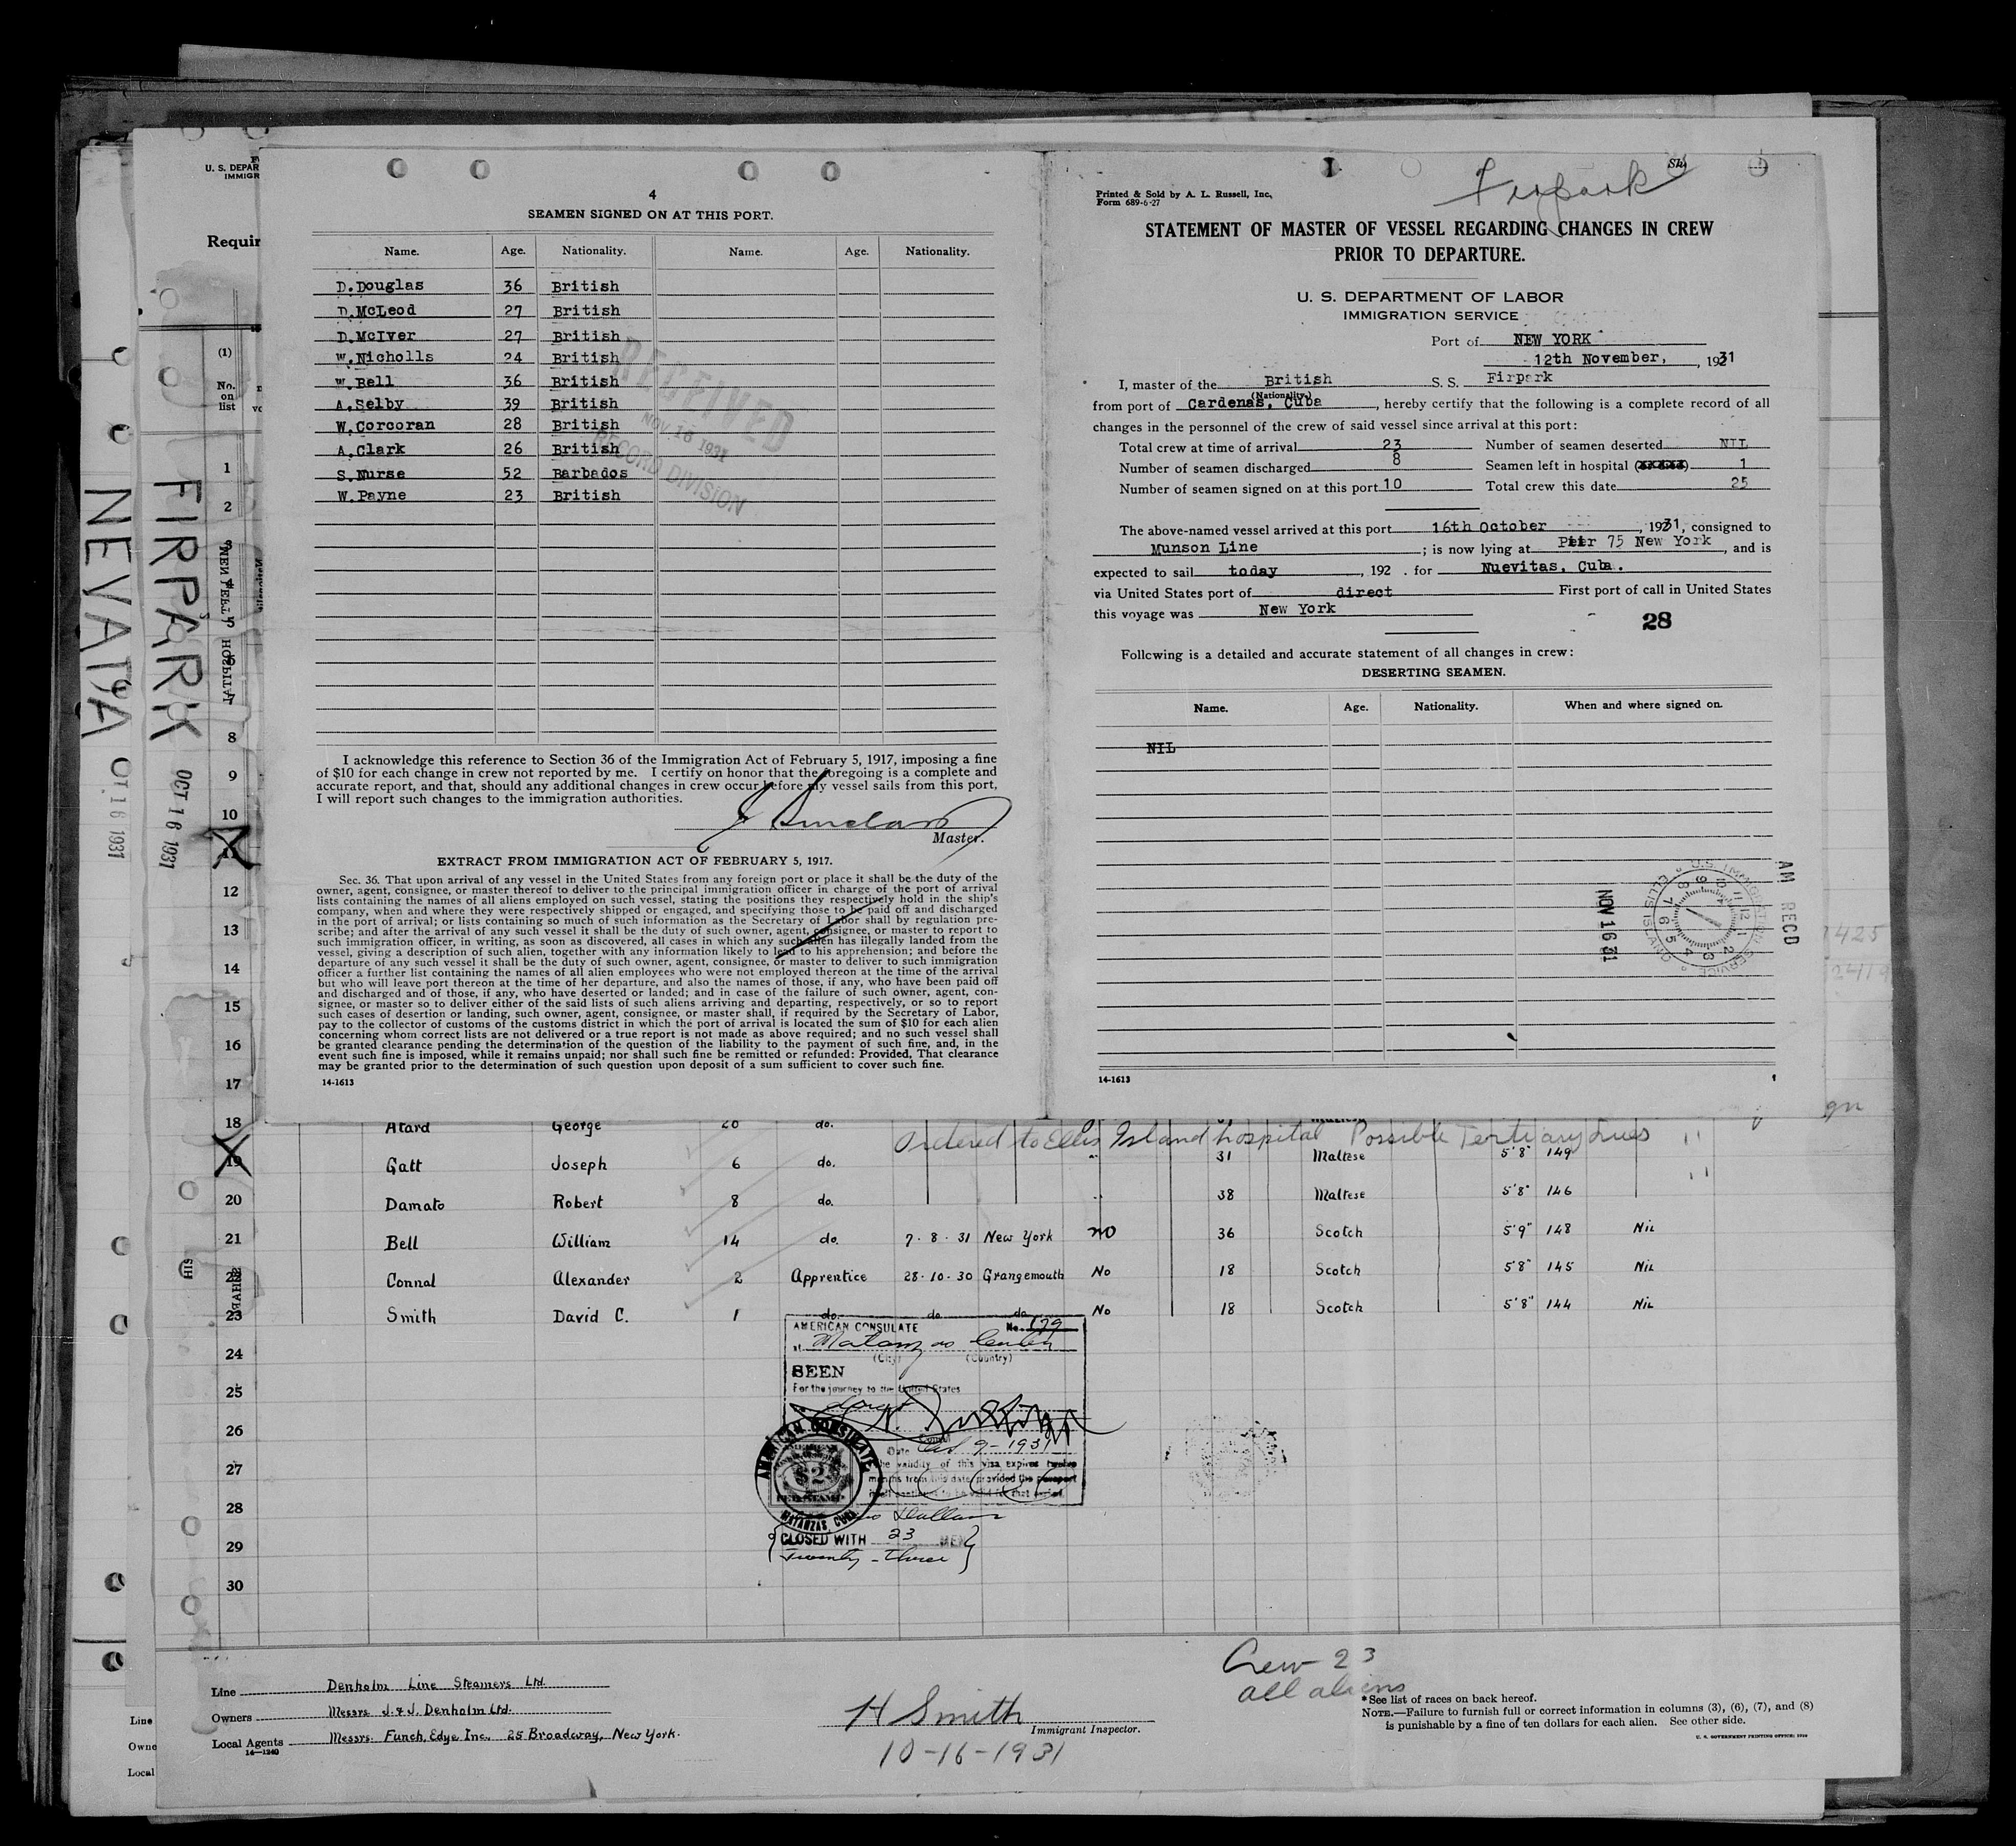 4
SEAMEN SIGNED ON AT THIS PORT.
Name. Age. Nationality. Name. Age. Nationality.
D.Douglas 36 British
D.McLeod 27 British
D.McIver 27 British
W.Nicholls 24 British
W.Bell 36 British
A.Selby 39 British
W.Corcoran 28 British
A.Clark 26 British
S.Nurse 52 Barbados
W.Payne 23 British
RECEIVED
NOV 16 1931
RECORD DIVISION
I acknowledge this reference to Section 36 of the Immigration Act of February 5, 1917, imposing a fine
of $10 for each change in crew not reported by me. I certify on honor that the foregoing is a complete and
accurate report, and that, should any additional changes in crew occur before my vessel sails from this port,
I will report such changes to the immigration authorities.
J Sinclair
Master.
EXTRACT FROM IMMIGRATION ACT OF FEBRUARY 5, 1917.
Sec. 36. That upon arrival of any vessel in the United States from any foreign port or place it shall be the duty of the
owner, agent, consignee, or master thereof to deliver to the principal immigration officer in charge of the port of arrival
lists containing the names of all aliens employed on such vessel, stating the positions they respectively hold in the ship's
company, when and where they were respectively shipped or engaged, and specifying those to be paid off and discharged
in the port of arrival; or lists containing so much of such information as the Secretary of Labor shall by regulation pre-
scribe; and after the arrival of any such vessel it shall be the duty of such owner, agent, consignee, or master to report to
such immigration officer, in writing, as soon as discovered, all cases in which any such alien has illegally landed from the
vessel, giving a description of such alien, together with any information likely to lead to his apprehension; and before the
departure of any such vessel it shall be the duty of such owner, agent, consignee, or master to deliver to such immigration
officer a further list containing the names of all alien employees who were not employed thereon at the time of the arrival
but who will leave port thereon at the time of her departure, and also the names of those, if any, who have been paid off
and discharged and of those, if any, who have deserted or landed; and in case of the failure of such owner, agent, con-
signee, or master so to deliver either of the said lists of such aliens arriving and departing, respectively, or so to report
such cases of desertion or landing, such owner, agent, consignee, or master shall, if required by the Secretary of Labor,
pay to the collector of customs of the customs district in which the port of arrival is located the sum of $10 for each alien
concerning whom correct lists are not delivered or a true report is not made as above required; and no such vessel shall
be granted clearance pending the determination of the question of the liability to the payment of such fine, and, in the
event such fine is imposed, while it remains unpaid; nor shall such fine be remitted or refunded: Provided, That clearance
may be granted prior to the determination of such question upon deposit of a sum sufficient to cover such fine.
14-1613
Firpark
Printed & Sold by A. L. Russell, Inc,
Form 689-6-27
STATEMENT OF MASTER OF VESSEL REGARDING CHANGES IN CREW
PRIOR TO DEPARTURE.
U. S. DEPARTMENT OF LABOR
IMMIGRATION SERVICE
Port of NEW YORK
12th November, , 1931
I, master of the British S. S. Firpark
(Nationality.)
from port of Cardenas, Cuba , hereby certify that the following is a complete record of all
changes in the personnel of the crew of said vessel since arrival at this port:
Total crew at time of arrival 23 Number of seamen deserted NIL
Number of seamen discharged 8 Seamen left in hospital 1
Number of seamen signed on at this port 10 Total crew this date 25
The above-named vessel arrived at this port 16th October , 1931, consigned to
Munson Line ; is now lying at Pier 75 New York , and is
expected to sail today , 192 . for Nuevitas, Cuba.
via United States port of direct First port of call in United States
this voyage was New York
28
Following is a detailed and accurate statement of all changes in crew:
DESERTING SEAMEN.
Name. Age. Nationality. When and where signed on.
NIL
U.S. IMMIGRATION SERVICE ELLIS ISLAND
NOV 16 31
AM RECD
14-1613
U. S. DEPAR
IMMIGR
Requir
(1)
No.
on
list
FIRPARK
OCT 16 1931
NEVADA
OT 16 1931
1
2
3
4
5
6
7
8
9
10
11
12
13
14
15
16
17
18 Atard George 20 do.
Ordered to Ellis Island hospital Possible Tertiary Lues
19 Gatt Joseph 6 do. 31 Maltese 5'8" 149
20 Damato Robert 8 do. 38 Maltese 5'8" 146
21 Bell William 14 do. 7·8·31 New York no 36 Scotch 5'9" 148 Nil
22 Connal Alexander 2 Apprentice 28·10·30 Grangemouth No 18 Scotch 5'8" 145 Nil
23 Smith David C. 1 do. do. do No 18 Scotch 5'8" 144 Nil
24
25
26
27
28
29
30
AMERICAN CONSULATE No. 179
at Matanzas Cuba
(City) (Country)
SEEN
For the journey to the United States
Consul
Date Oct 9-1931
The validity of this visa expires twelve
months from this date provided the passport
AMERICAN CONSULATE
MATANZAS, CUBA
$2
CLOSED WITH 23 MEN
Twenty-three
Line Denholm Line Steamers Ltd.
Owners Messrs. J. & J. Denholm Ltd.
Local Agents Messrs. Funch, Edye Inc., 25 Broadway, New York.
14-1240
H Smith
Immigrant Inspector.
10-16-1931
Crew 23
all aliens
*See list of races on back hereof.
NOTE.—Failure to furnish full or correct information in columns (3), (6), (7), and (8)
is punishable by a fine of ten dollars for each alien. See other side.
Line
Owne
Local